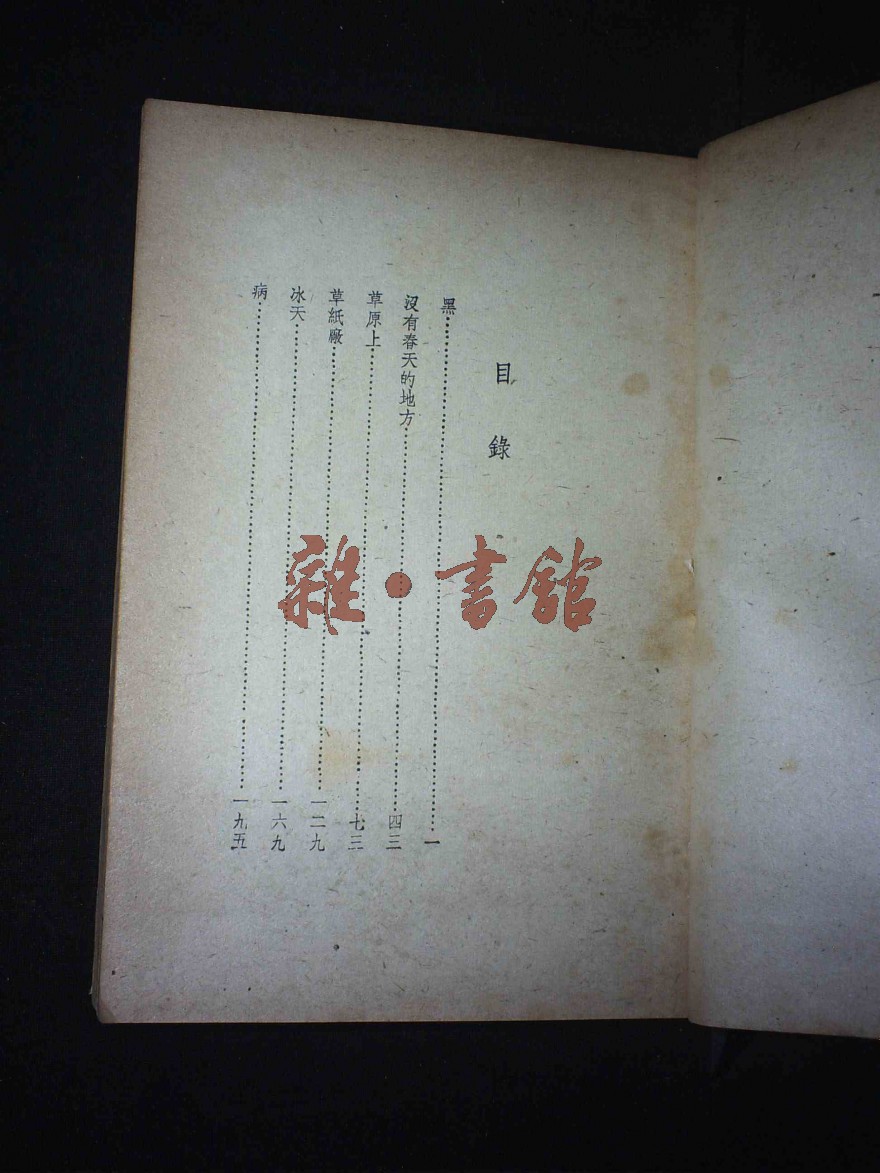 目錄
黑……一
沒有春天的地方……四三
草原上……七三
草紙廠……一二九
冰天……一六九
病……一九五
雜·書館